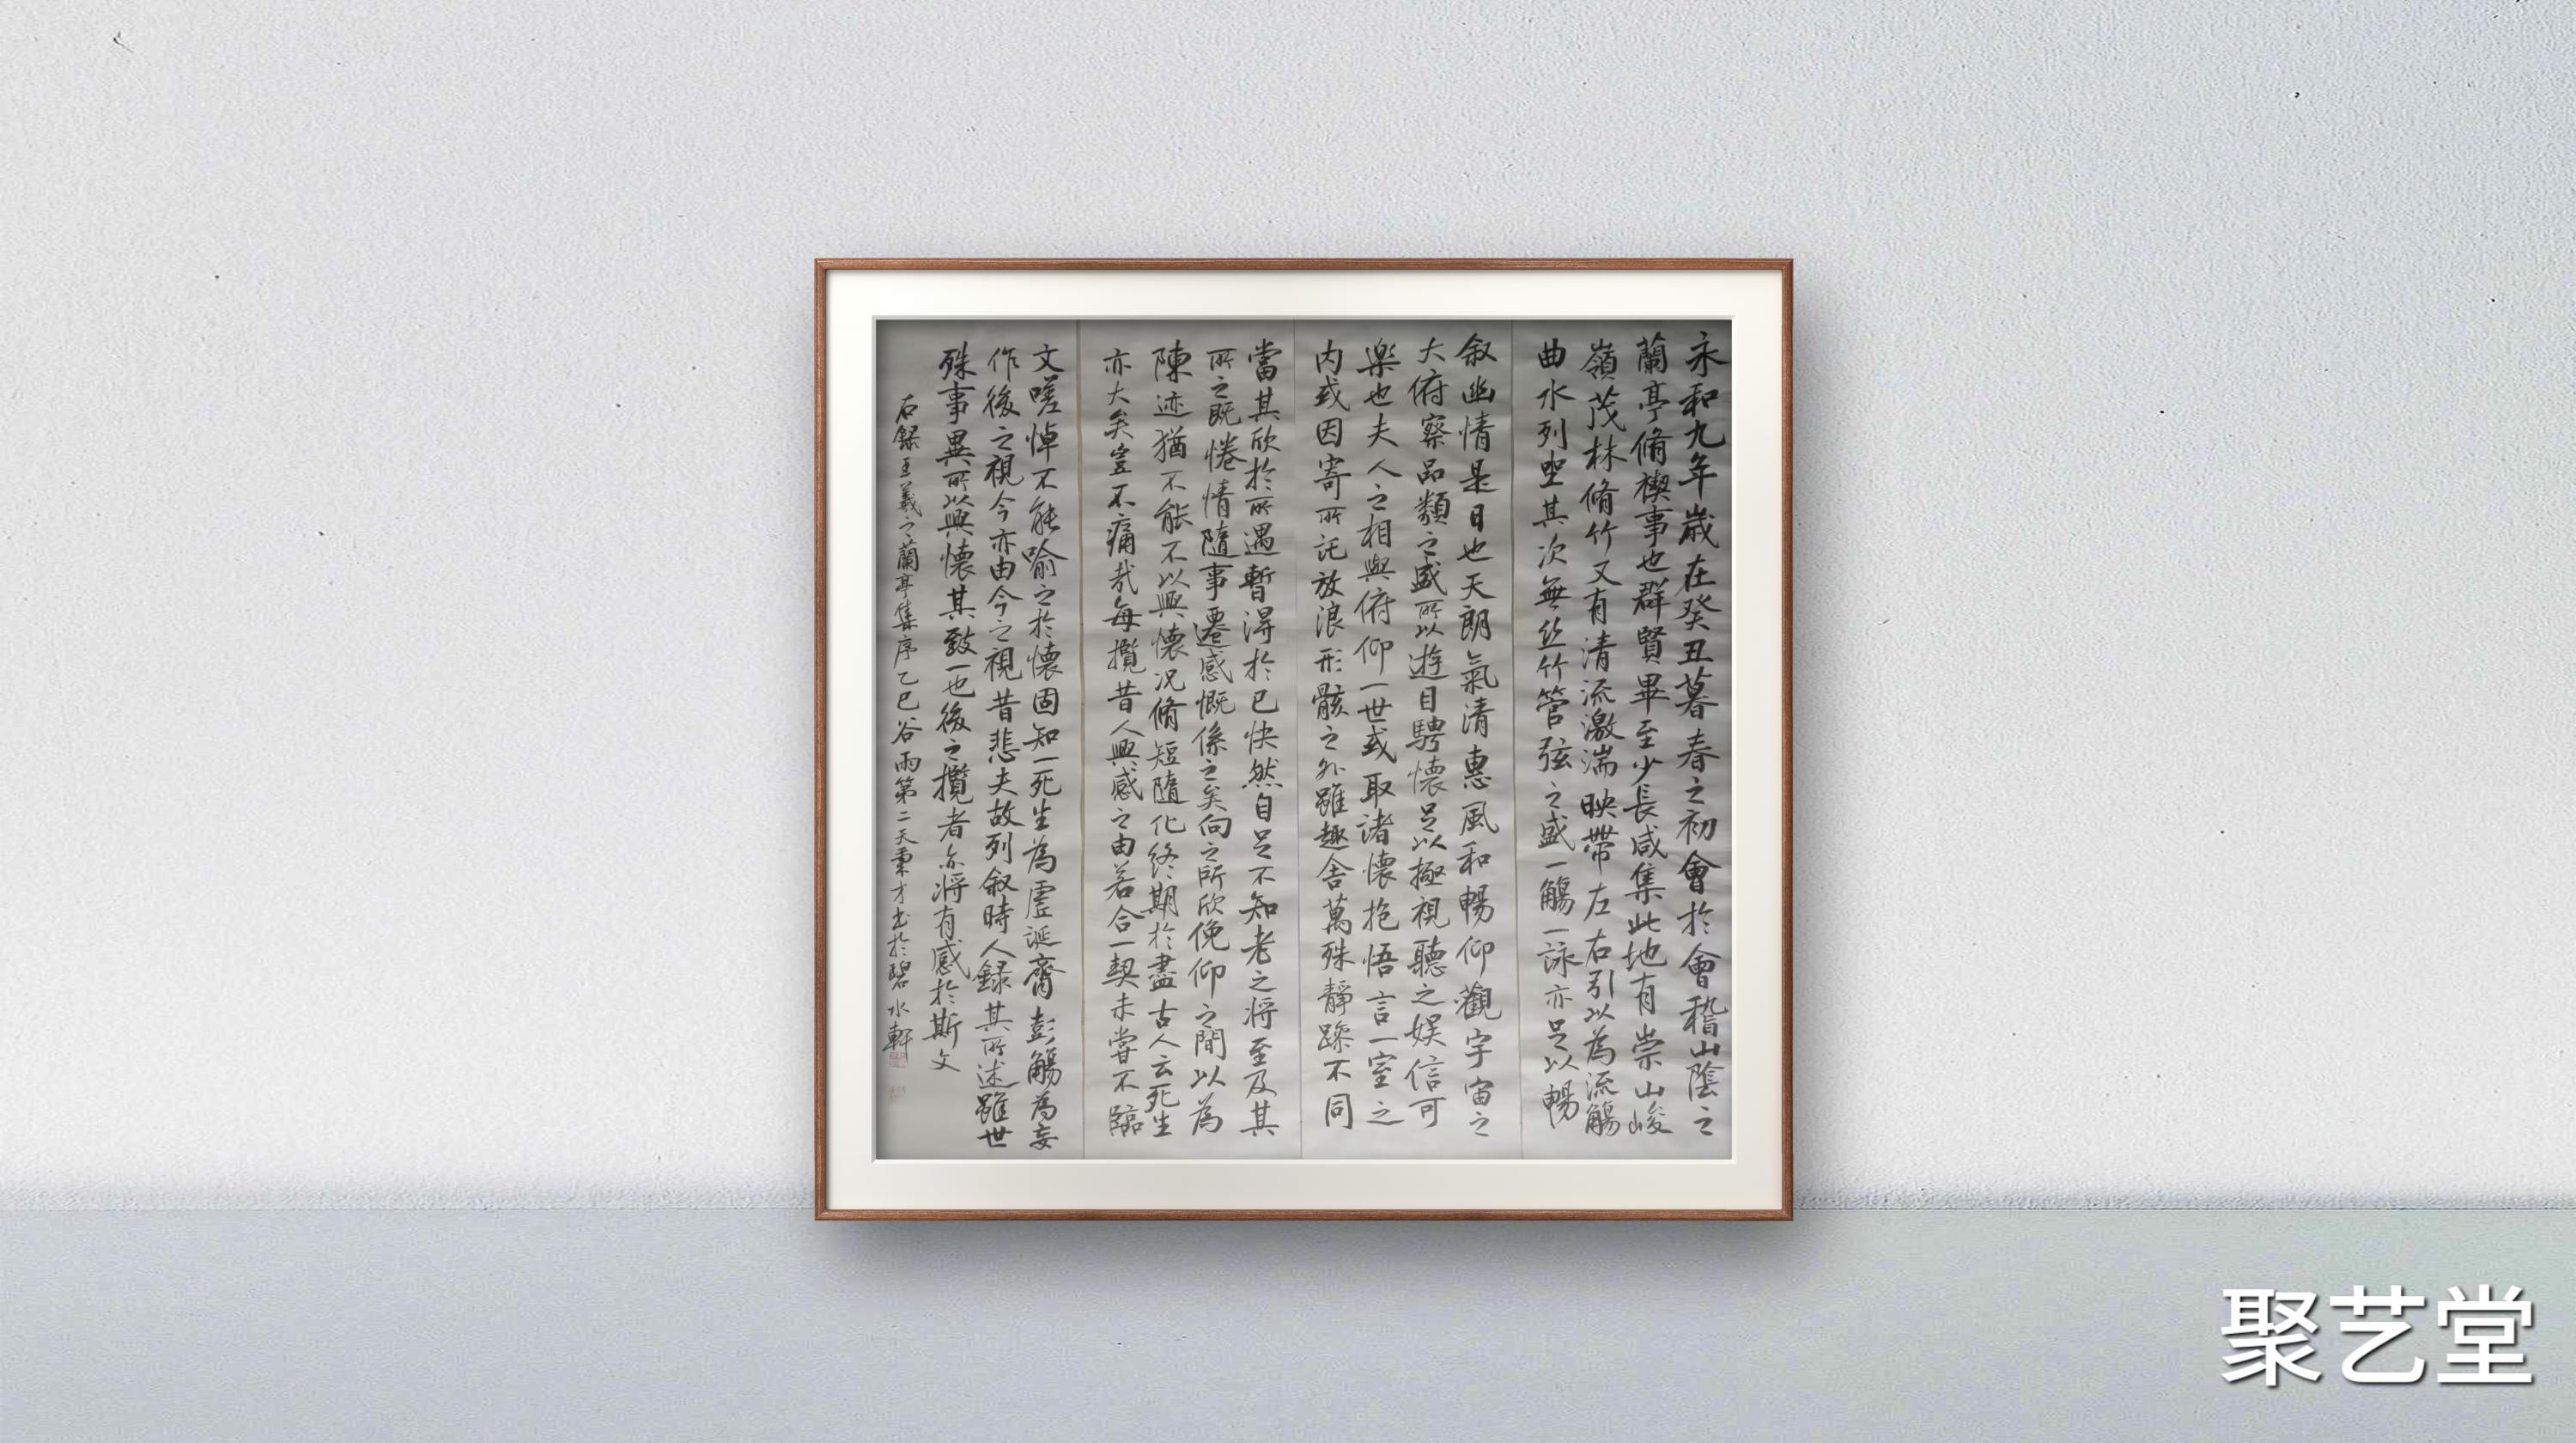 永和九年歲在癸丑暮春之初會於會稽山陰之
蘭亭脩禊事也群賢畢至少長咸集此地有崇山峻
嶺茂林脩竹又有清流激湍映帶左右引以為流觴
曲水列坐其次無丝竹管弦之盛一觴一詠亦足以暢
叙幽情是日也天朗氣清惠風和暢仰觀宇宙之
大俯察品類之盛所以遊目騁懷足以極視聽之娱信可
楽也夫人之相與俯仰一世或取諸懷抱悟言一室之
内或因寄所託放浪形骸之外雖趣舎萬殊靜躁不同
當其欣於所遇暫得於己快然自足不知老之将至及其
所之既惓情隨事遷感慨係之矣向之所欣俛仰之間以為
陳迹猶不能不以興懷况脩短隨化终期於盡古人云死生
亦大矣豈不痛哉每攬昔人興感之由若合一契未嘗不臨
文嗟悼不能喻之於懷固知一死生為虚誕齊彭觴為妄
作後之視今亦由今之視昔悲夫故列叙時人録其所述雖世
殊事異所以興懷其致一也後之攬者亦将有感於斯文
右録王羲之蘭亭集序乙巳谷雨第二天秉才书於碧水軒
聚艺堂